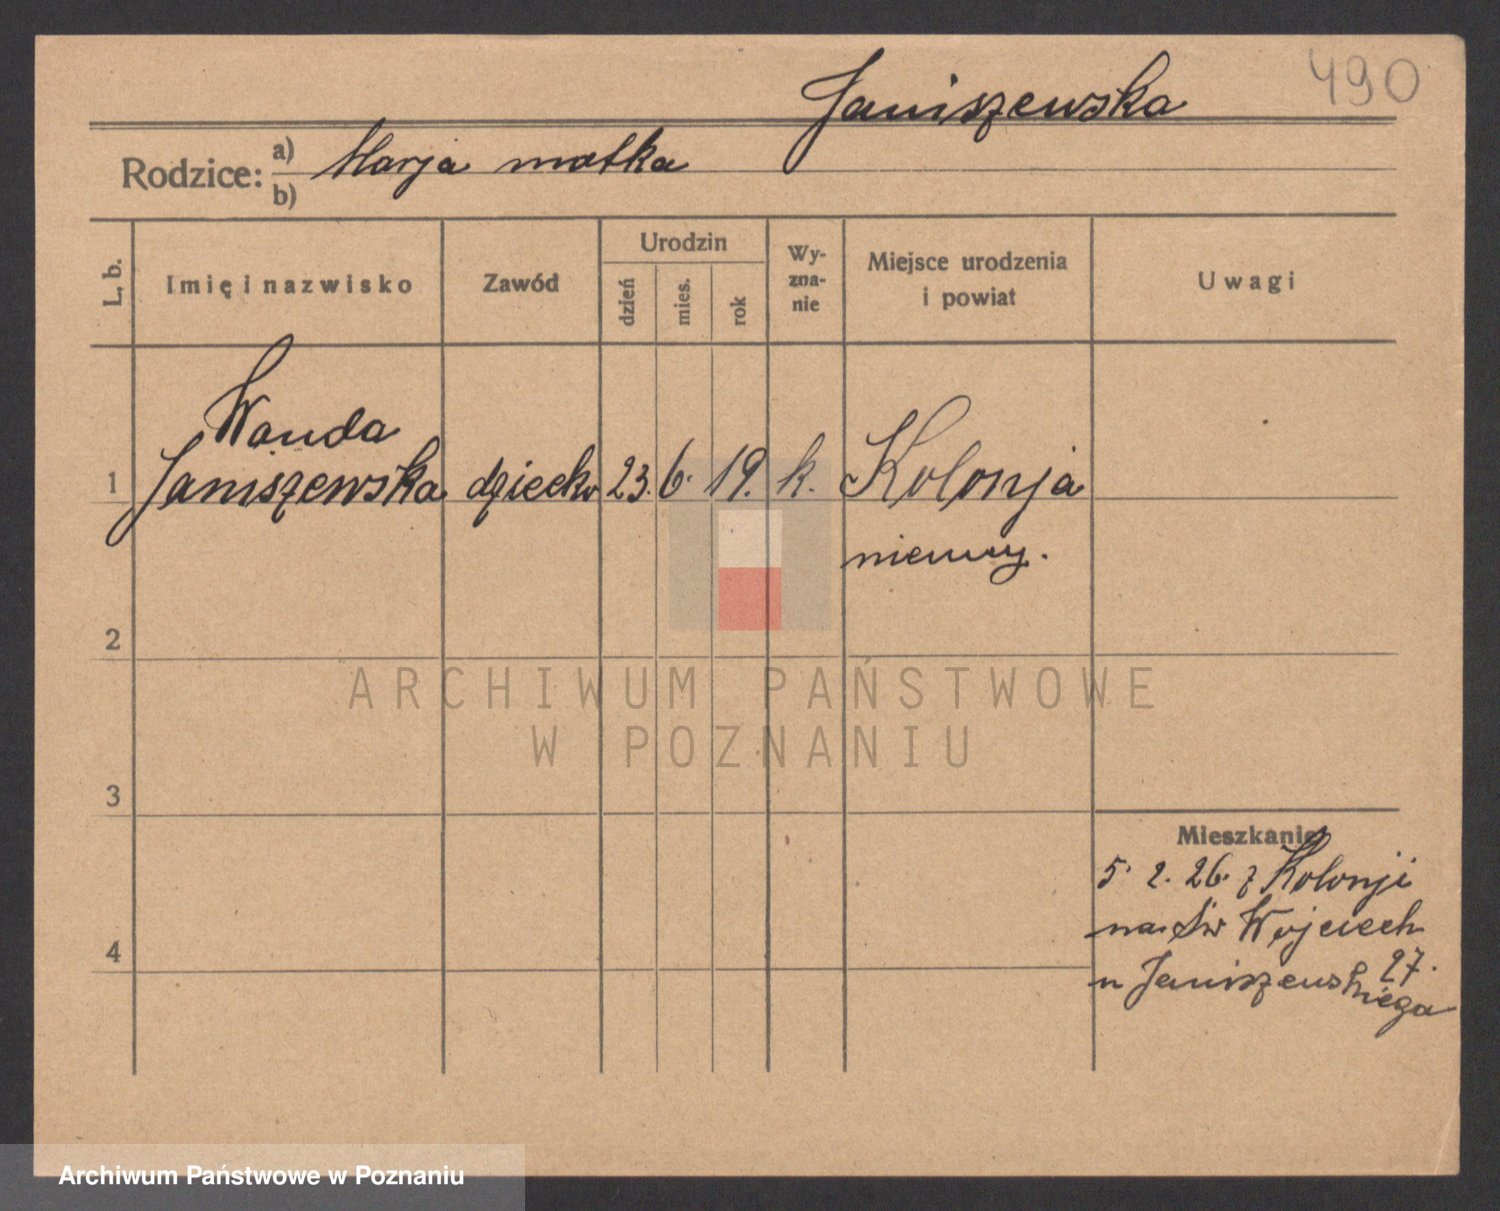 490
Janiszewska
Rodzice: a) Marja matka
b)
L. b.
Imię i nazwisko
Zawód
Urodzin
dzień
mies.
rok
Wy-
zna-
nie
Miejsce urodzenia
i powiat
Uwagi
Wanda
1 Janiszewska dziecko 23. 6. 19. k. Kolonja
niemcy.
2
3
4
Mieszkanie
5. 2. 26. z Kolonji
na Św Wojciech
27.
u Janiszewskiega
ARCHIWUM PAŃSTWOWE
W POZNANIU
Archiwum Państwowe w Poznaniu